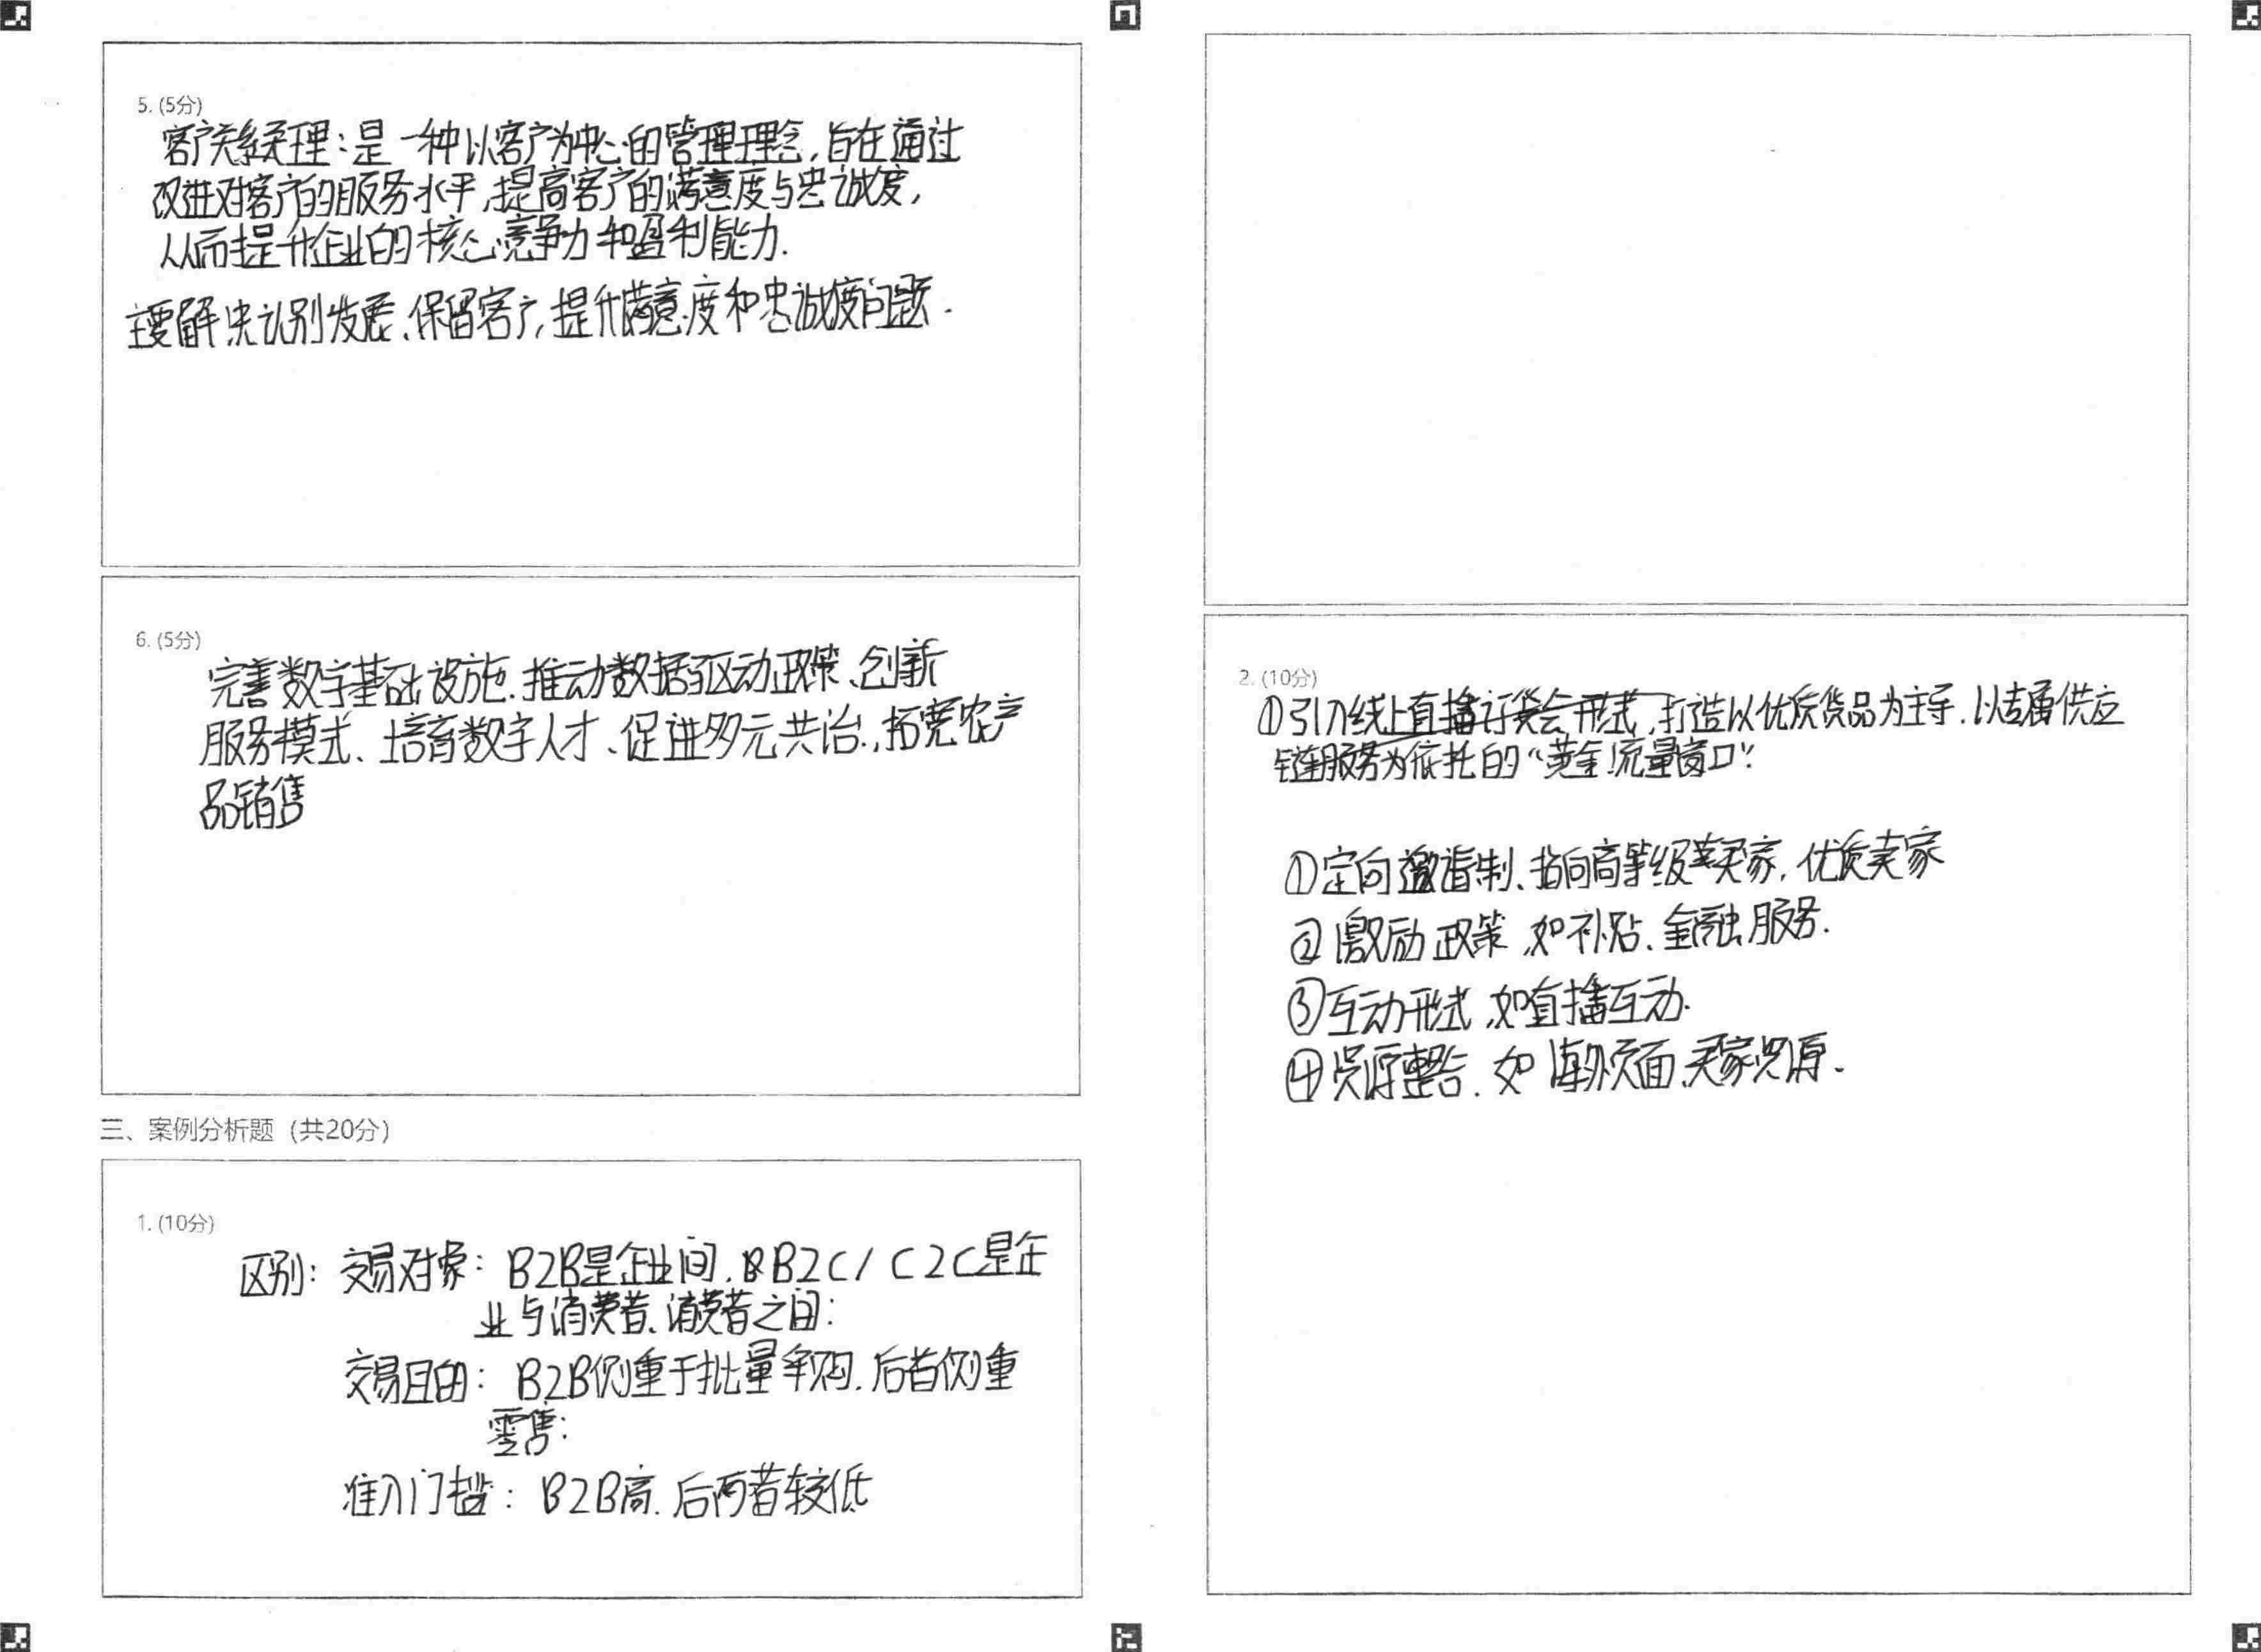 5. (5分)
客户关系管理:是一种以客户为中心的管理理念,旨在通过
改进对客户的服务水平,提高客户的满意度与忠诚度,
从而提升企业的核心竞争力和盈利能力.
主要解决识别发展、保留客户,提升满意度和忠诚度问题.
6. (5分)
完善数字基础设施、推动数据驱动政策、创新
服务模式、培育数字人才、促进多元共治,拓宽农产
品销售
三、案例分析题 (共20分)
1. (10分)
区别: 交易对象: B2B是企业间, B2C/C2C是企
业与消费者、消费者之间;
交易目的: B2B侧重于批量采购,后者侧重
零售;
准入门槛: B2B高,后两者较低
2. (10分)
①引入线上直播订货会形式,打造以优质货品为主导,以专属供应
链服务为依托的“黄金流量窗口”;
①定向邀请制、指向高等级买家,优质卖家
②激励政策,如补贴、金融服务.
③互动形式,如直播互动.
④资源整合,如 页面、买家资源.